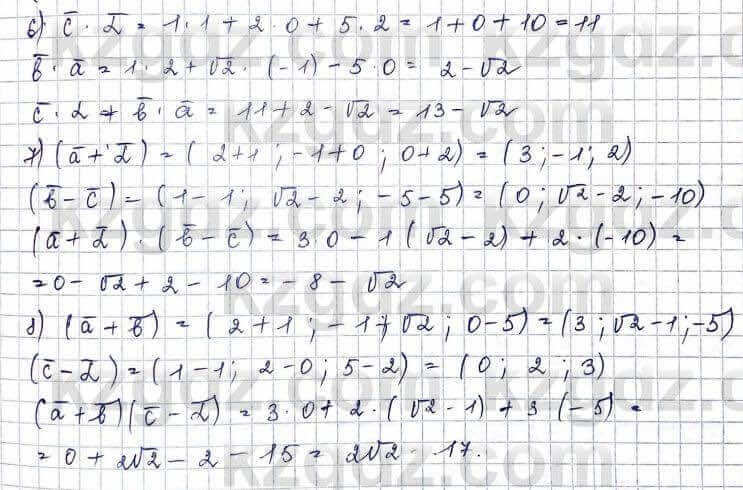 6) c̅ · d̅ = 1·1 + 2·0 + 5·2 = 1+0+10 = 11
b̅ · a̅ = 1·2 + √2 · (-1) - 5·0 = 2-√2
c̅ · d̅ + b̅ · a̅ = 11+2-√2 = 13-√2
7) (a̅+d̅) = (2+1; -1+0; 0+2) = (3; -1; 2)
(b̅-c̅) = (1-1; √2-2; -5-5) = (0; √2-2; -10)
(a̅+d̅) · (b̅-c̅) = 3·0 - 1(√2-2) + 2·(-10) =
= 0-√2+2-10 = -8-√2
8) (a̅+b̅) = (2+1; -1+√2; 0-5) = (3; √2-1; -5)
(c̅-d̅) = (1-1; 2-0; 5-2) = (0; 2; 3)
(a̅+b̅)(c̅-d̅) = 3·0+2·(√2-1)+3(-5) =
= 0+2√2-2-15 = 2√2-17.
kzgdz.com